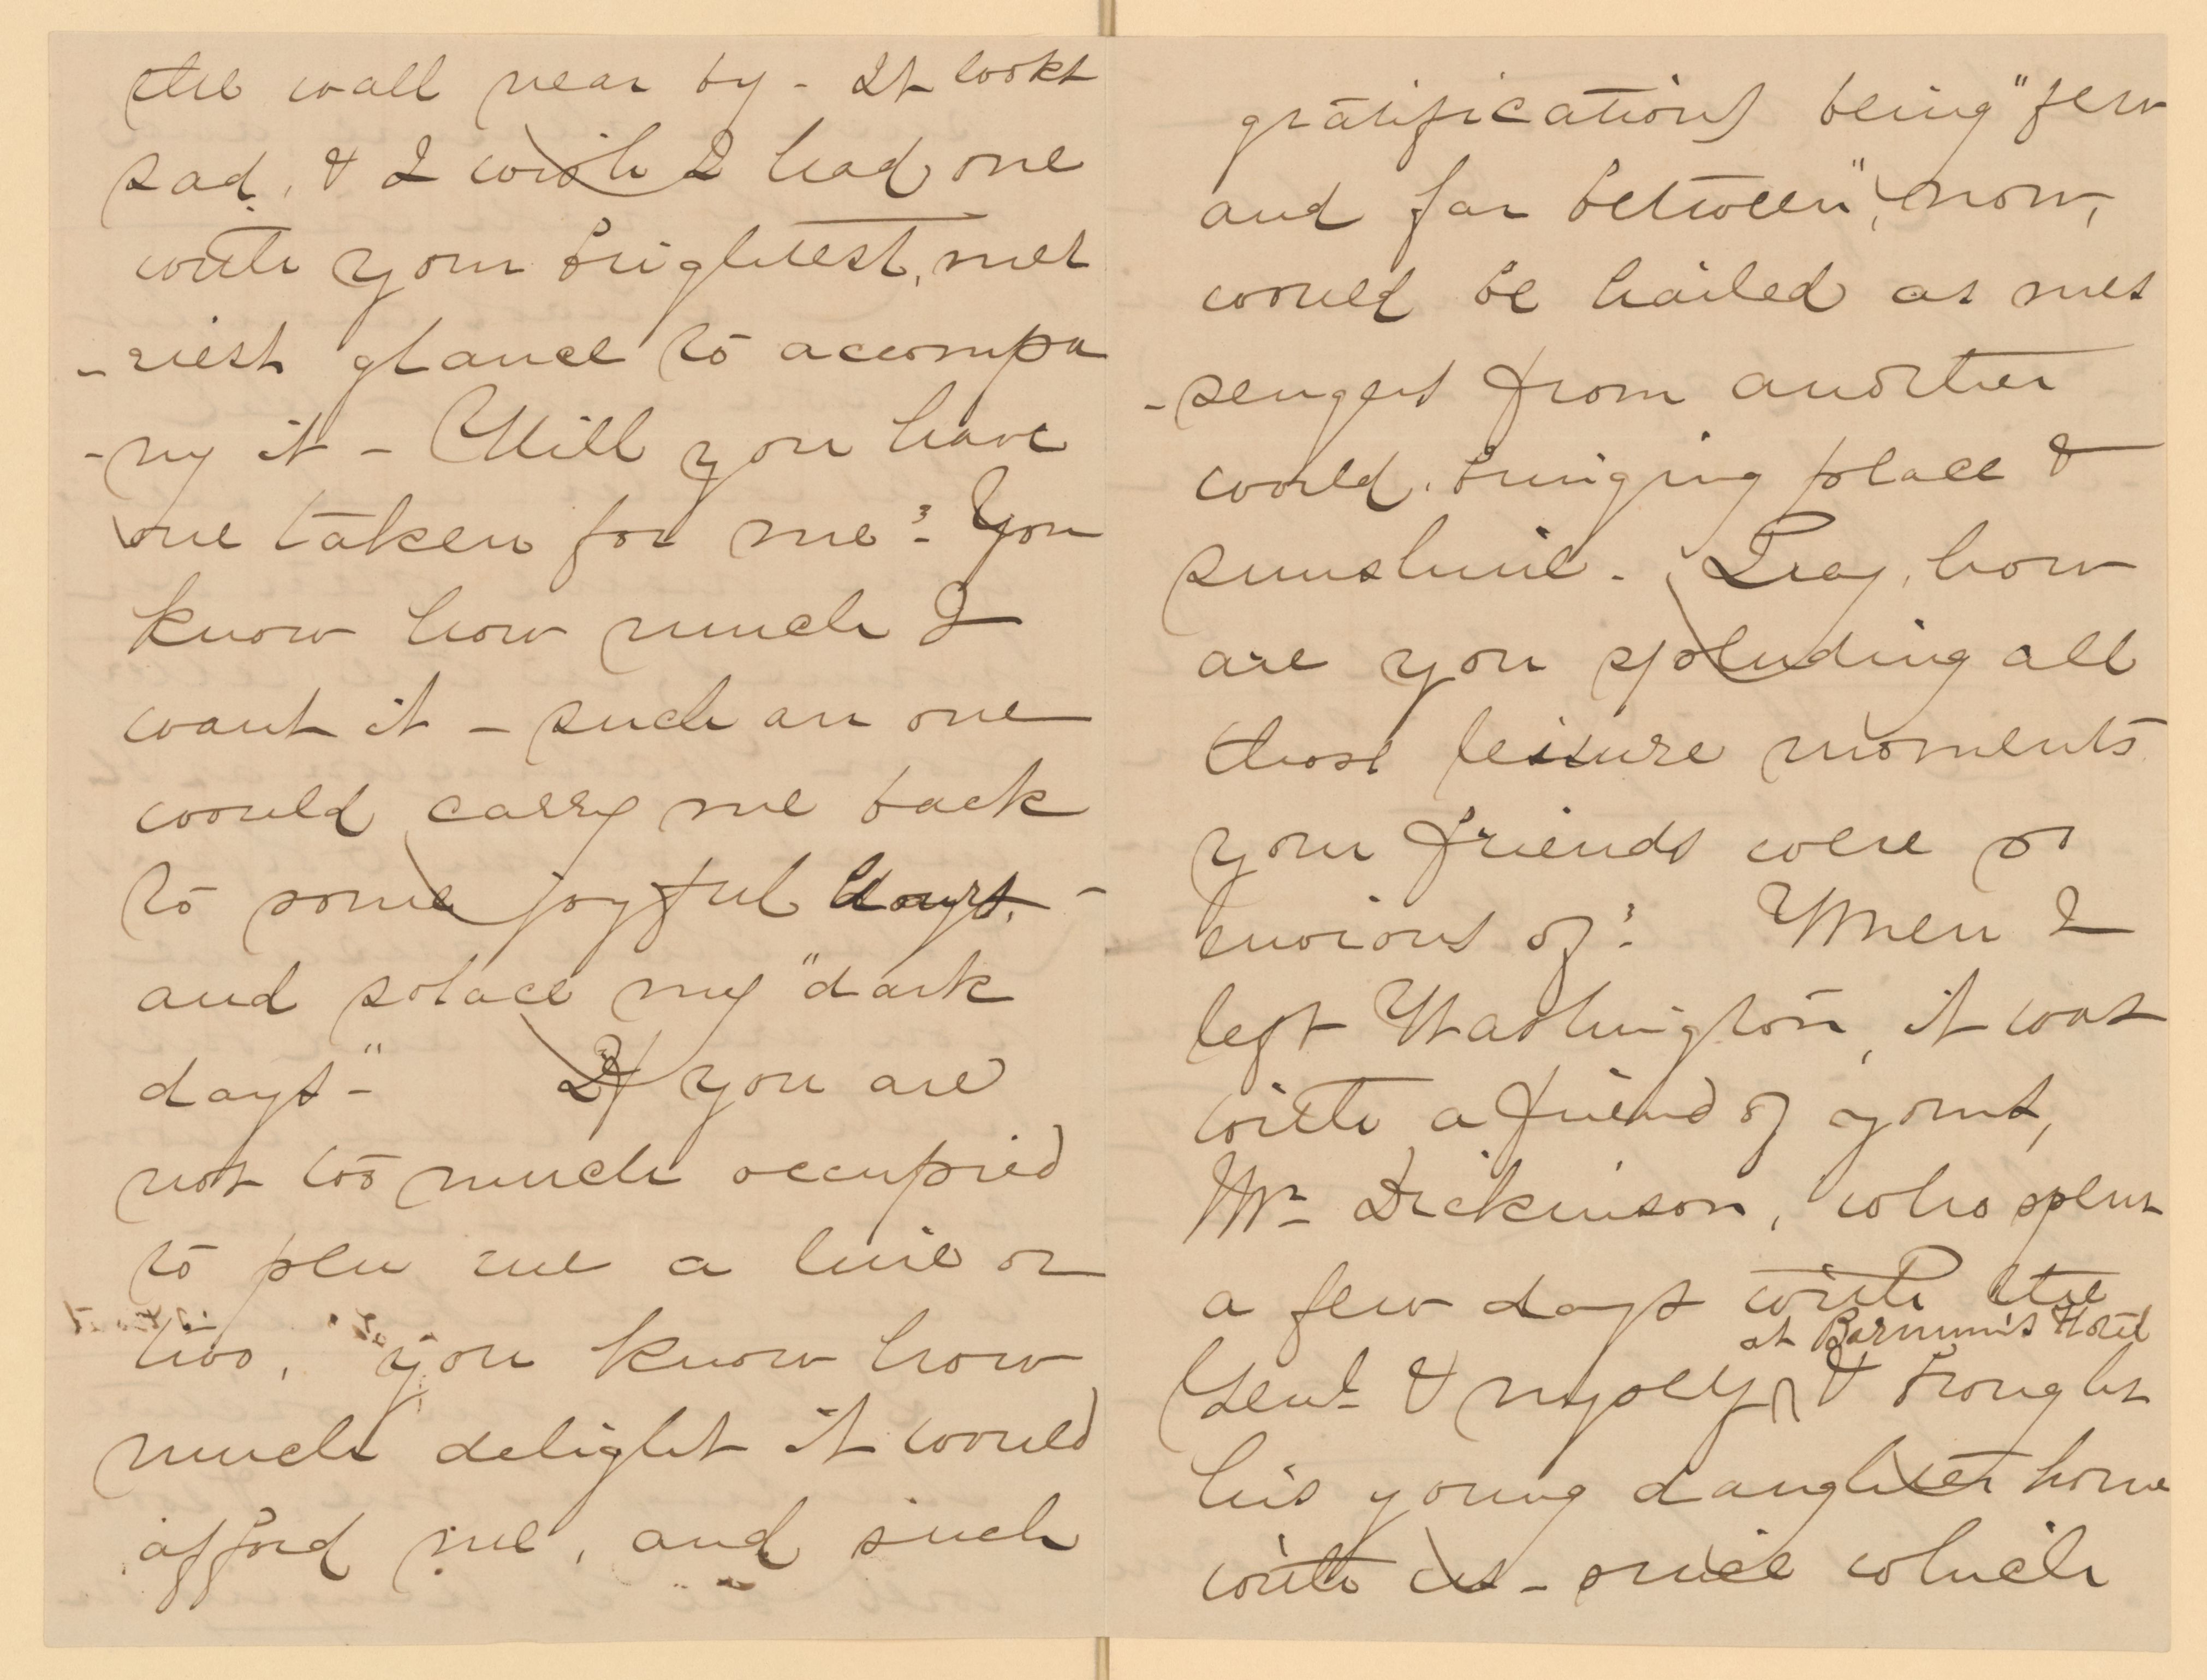 the wall near by - It looks
sad, & I wish I had one
with your brightest, mer
-riest glance to accompa
-ny it - Will you have
one taken for me? You
know how much I
want it - such an one
would carry me back
to some joyful days. -
and solace my "dark
days -" If you are
not too much occupied
to pen me a line or
two, you know how
much delight it would
afford me, and such
gratifications being "few
and far between", now,
would be hailed as mes
-sengers from another
world, bringing peace &
sunshine. Pray, how
are you spending all
those leisure moments
your friends were so
envious of? When I
left Washington, it was
with a friend of yours,
Mr. Dickinson, who spent
a few days with the
at Barnum's Hotel
Genl. & myself, & brought
his young daughter home
with us - since which